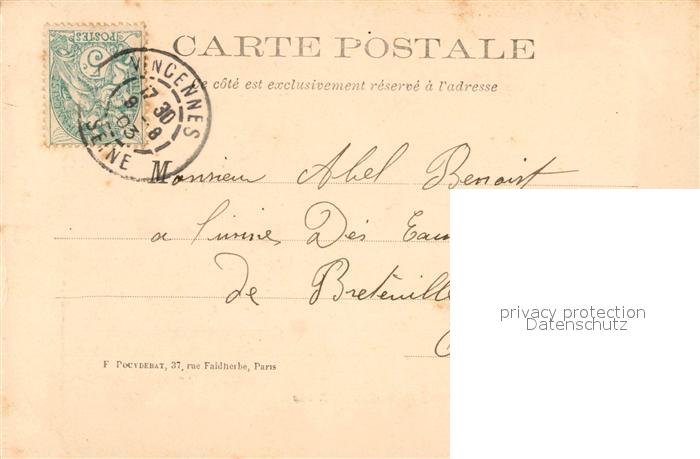 POSTES
5
CARTE POSTALE
VINCENNES
Ce côté est exclusivement réservé à l'adresse
17 30
9 - 8
03
SEINE
Monsieur Abel Benoist
a l'usine Des Eau
de Breteuille
privacy protection
Datenschutz
F POCYDEBAT, 37, rue Faidherbe, Paris